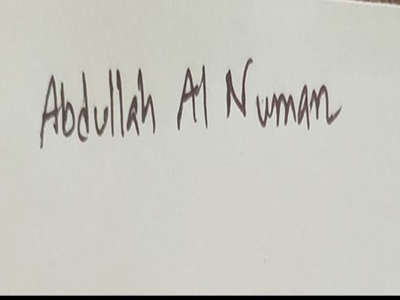 Abdullah Al Numan